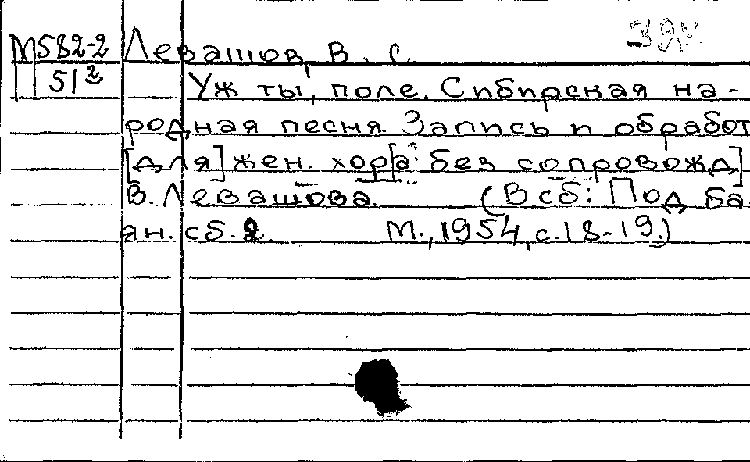 М582-2 Левашов, В. С.
51² Уж ты, поле. Сибирская на-
родная песня. Запись и обработ
[для] жен. хор[а без сопровожд.]
В. Левашова. (В сб: Под ба
ян. сб. 2. М., 1954, с. 18-19.)